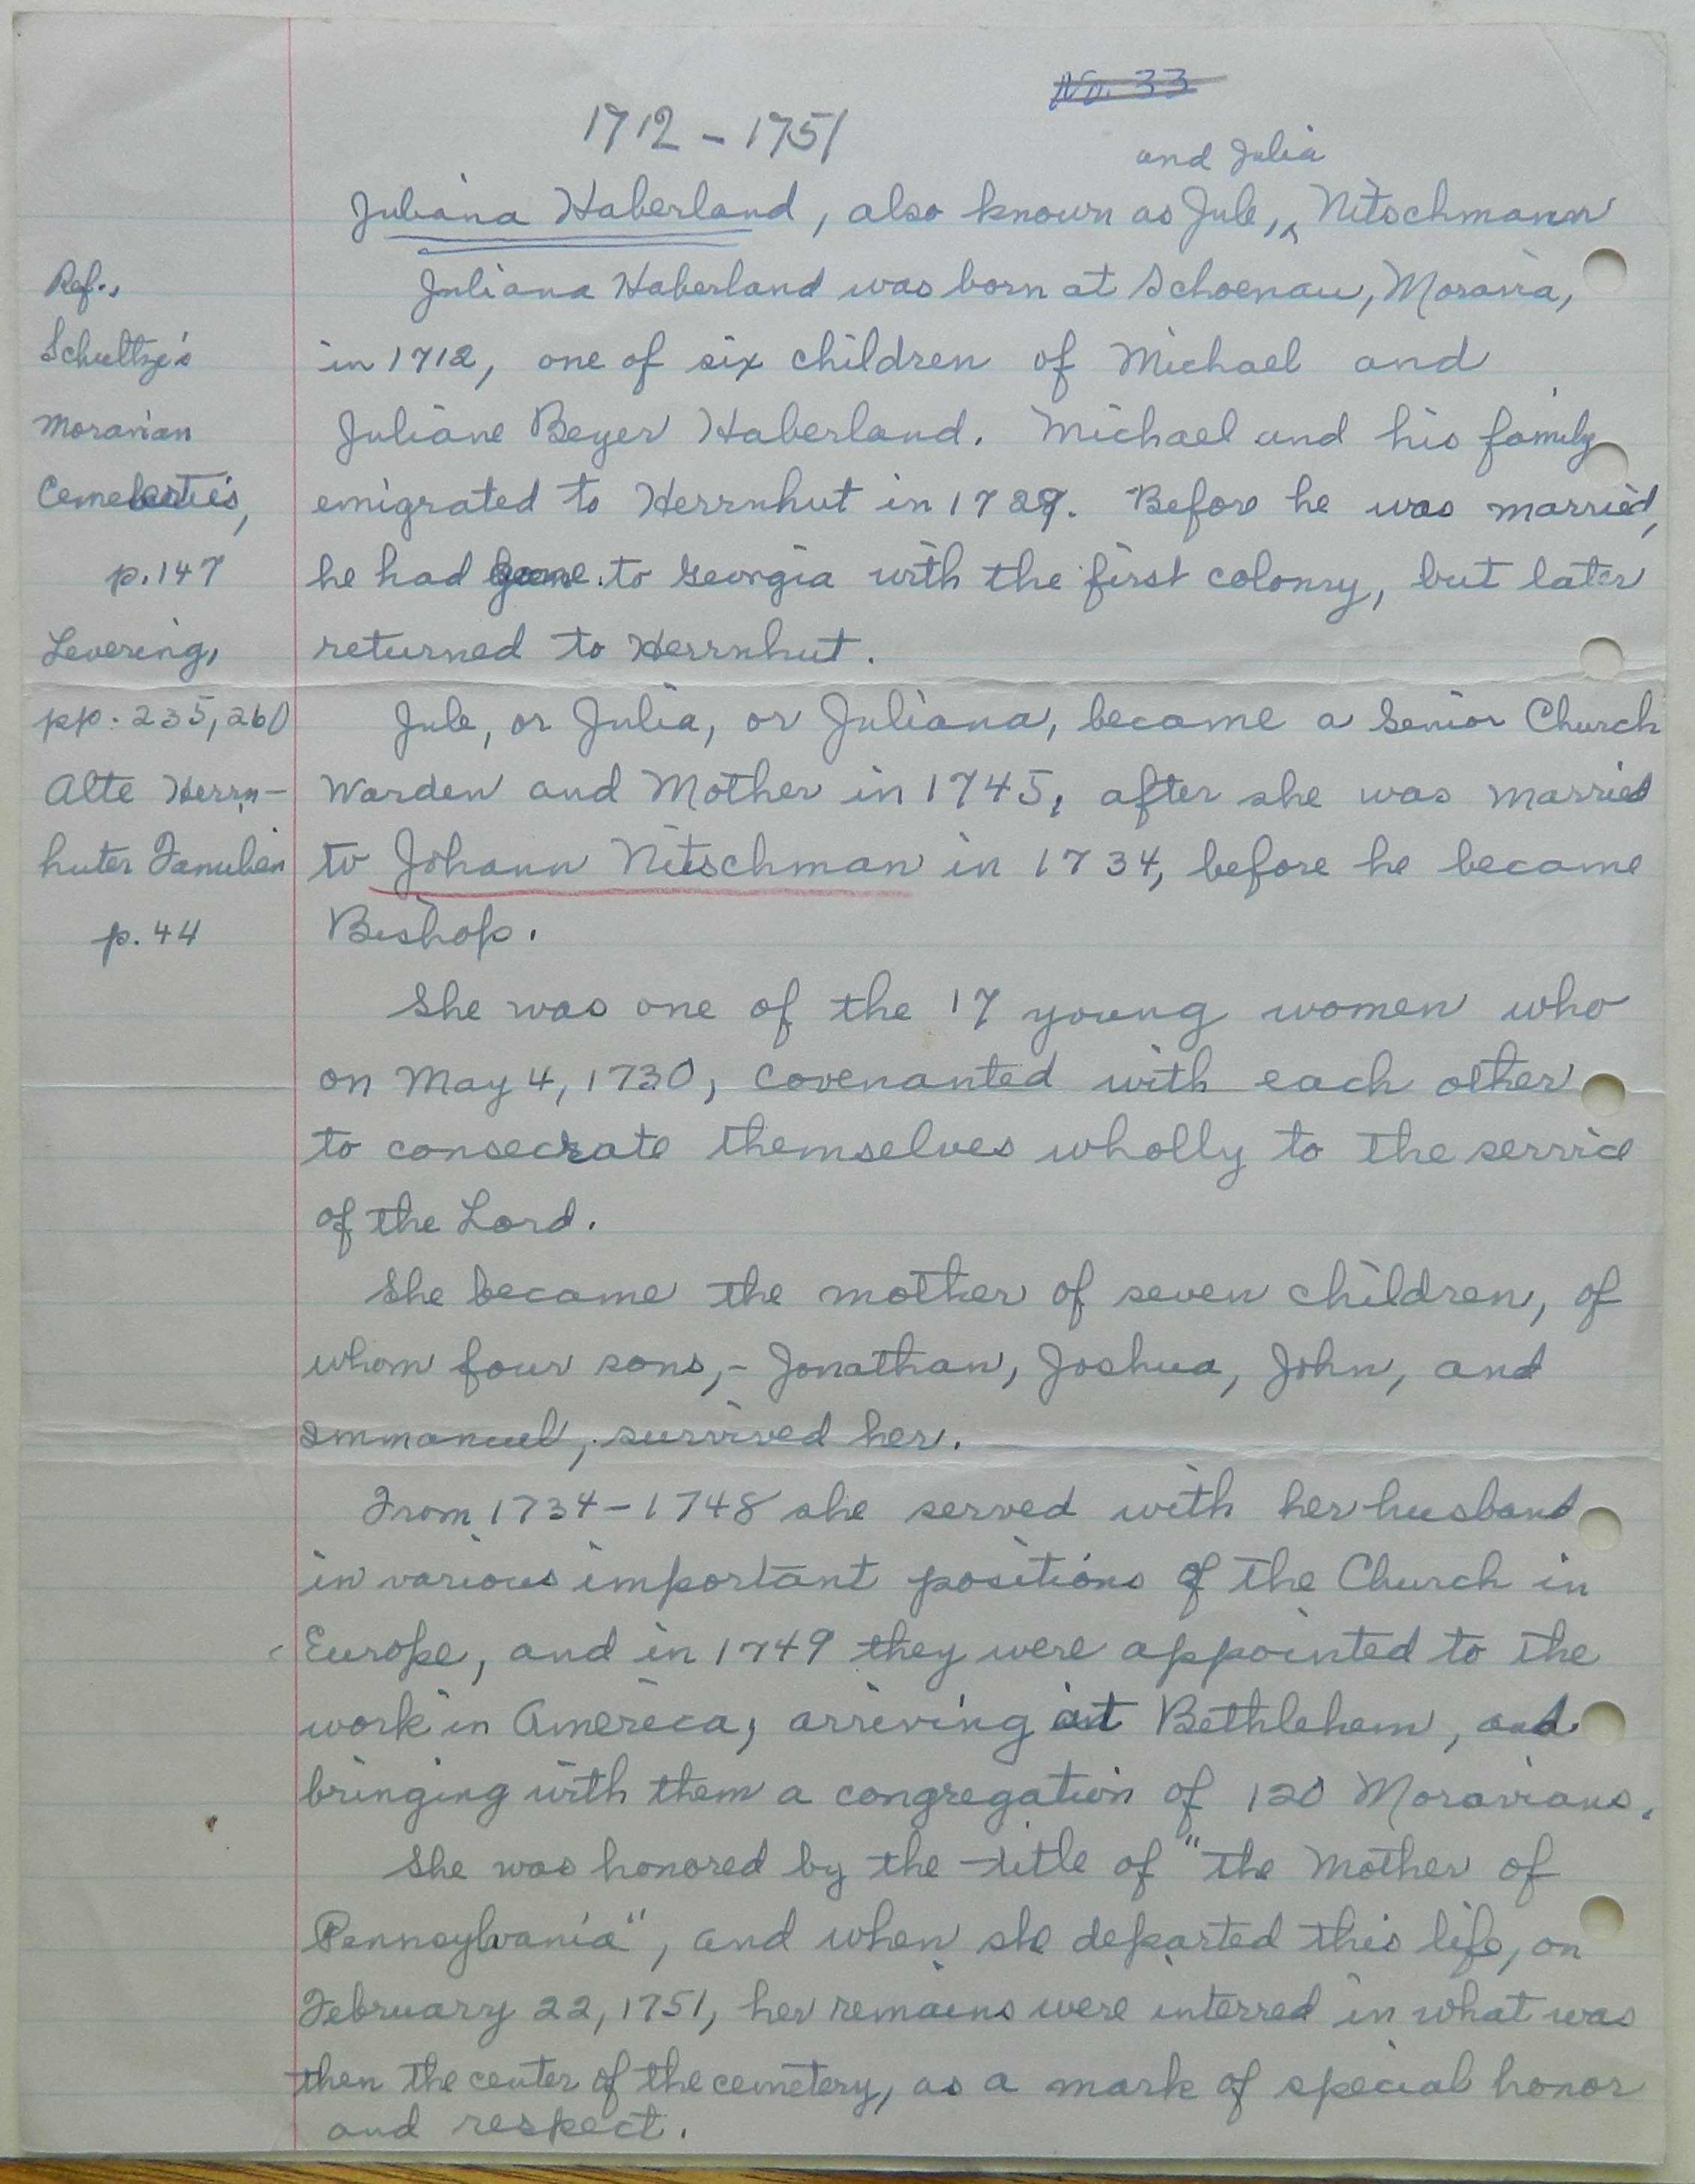 No. 33
1712 - 1751
and Julia
Juliana Haberland, also known as Jule, ^ Nitschmann
Juliana Haberland was born at Schoenau, Moravia,
in 1712, one of six children of Michael and
Juliane Beyer Haberland. Michael and his family
emigrated to Herrnhut in 1729. Before he was married,
he had gone to Georgia with the first colony, but later
returned to Herrnhut.
Jule, or Julia, or Juliana, became a Senior Church
Warden and Mother in 1745, after she was married
to Johann Nitschman in 1734, before he became
Bishop.
She was one of the 17 young women who
on May 4, 1730, covenanted with each other
to consecrate themselves wholly to the service
of the Lord.
She became the mother of seven children, of
whom four sons, - Jonathan, Joshua, John, and
Immanuel, survived her.
From 1734 - 1748 she served with her husband
in various important positions of the Church in
Europe, and in 1749 they were appointed to the
work in America, arriving at Bethlehem, and
bringing with them a congregation of 120 Moravians.
She was honored by the title of "the Mother of
Pennsylvania", and when she departed this life, on
February 22, 1751, her remains were interred in what was
then the center of the cemetery, as a mark of special honor
and respect.
Ref.,
Schultze's
Moravian
Cemeteries,
p. 147
Levering,
pp. 235, 260
Alte Herrn-
huter Familien
p. 44